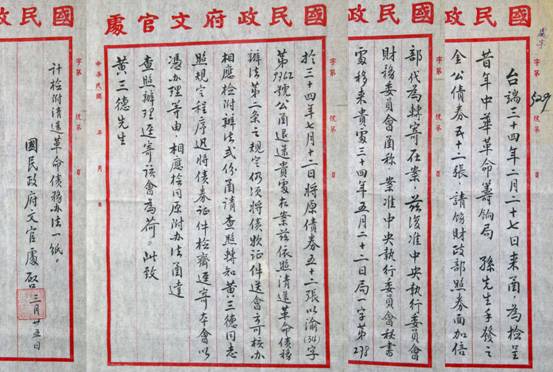 國民政
字第 529 號第
台端三十四年二月二十七日來函,為檢呈
昔年中華革命籌餉局 孫先生手發之
金公債券五十二張,請飭財政部照券面加倍
國民政
字第 號第
部代為轉寄在案,茲復准中央執行委員會
財務委員會函稱,案准中央執行委員會秘書
處移來貴處三十四年五月二十二日局一字第298
國民政府文官處
字第 號第
於三十四年七月十二日將原債券五十二張以渝(34)字
第7962號公函退還貴處在案茲依照清還革命債務
辦法第二條之規定仍須將債款證件送會方可核辦
相應檢附辦法弍份函請查照轉知黃三德同志
照規定程序迅將債券證件檢齊逕寄本會以
憑辦理等由,相應檢同原附辦法函達
查照辦理逕寄該會為荷。此致
黃三德先生
中華民國 年 月 日
國民政
字第 號第
計檢附清還革命債務辦法一紙。
國民政府文官處啟 三月廿五日